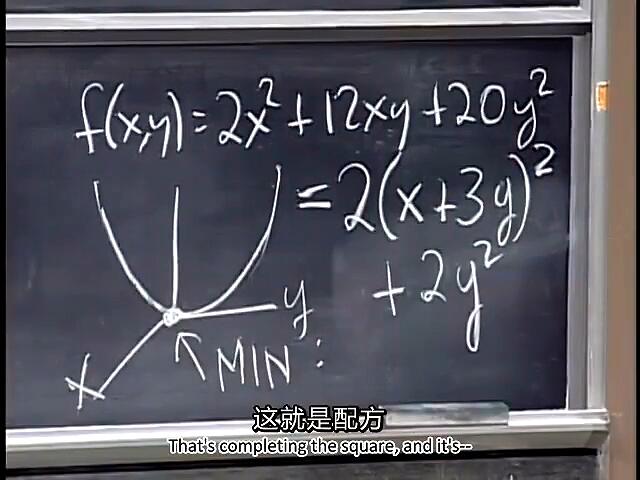 f(x,y)=2x²+12xy+20y²
=2(x+3y)²
+2y²
y
x
MIN:
这就是配方
That's completing the square, and it's--